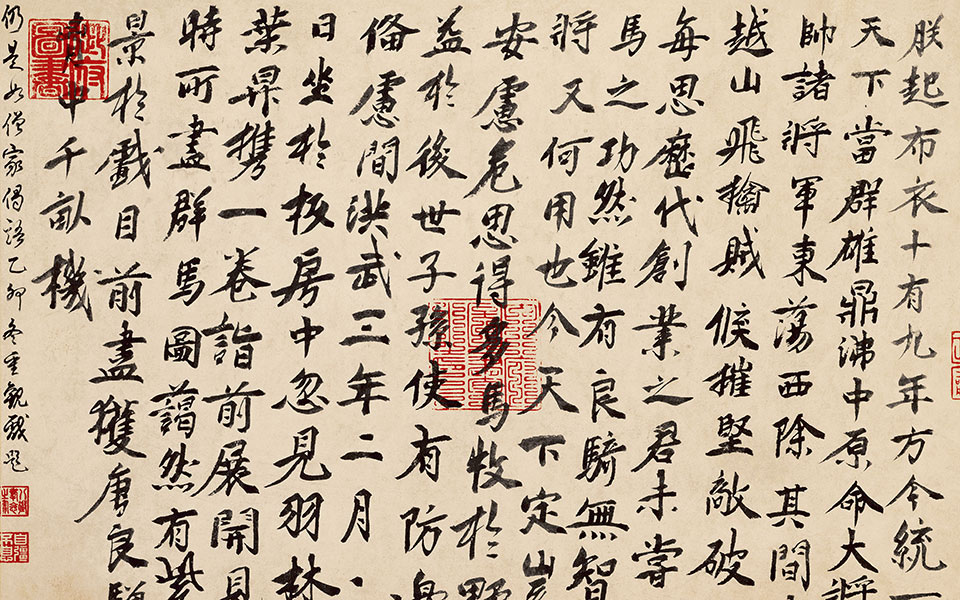 朕起布衣十有九年方今統
天下當群雄鼎沸中原命大將
帥諸將軍東蕩西除其間
越山飛擒賊候摧堅敵破
每思歷代創業之君未嘗
馬之功然雖有良騎無智
將又何用也今天下定
安慮危思得多馬牧於野
益於後世子孫使有防
俻慮間洪武三年二月
日坐於板房中忽見羽林
葉昇携一卷詣前展開見
時所畫群馬圖藹然有紫
景於戲目前盡獲唐良
中千畝機
仍是如僧家偈語乙卯冬重觀戲題
自彊不息